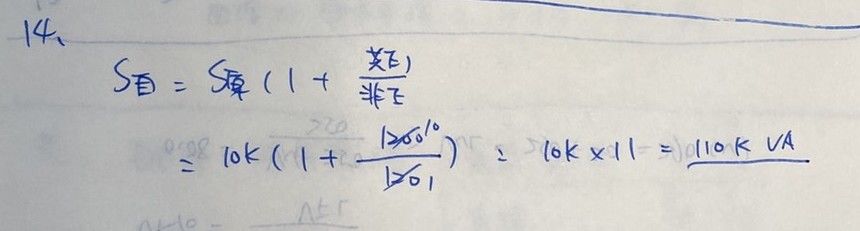 14、
S自 = S單 ( 1 + 共圧 / 非圧 )
= 10K ( 1 + 1200 10 / 120 1 ) = 10K × 11 = 110K VA